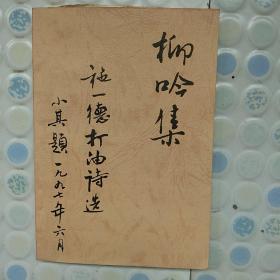 柳吟集
施一德打油诗选
小其題一九九七年六月